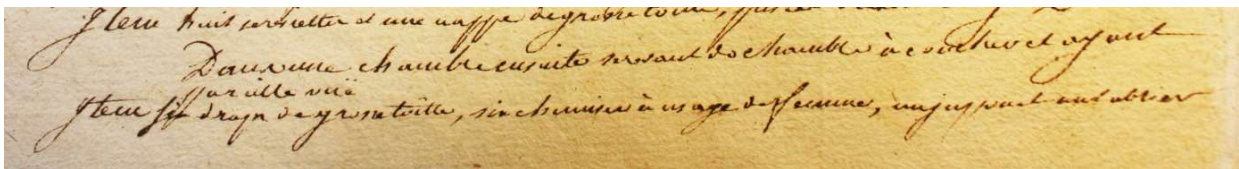 Jtem huit serviettes et une nappe de grosse toille,
Dans une chambre ensuite servant de chambre à coucher et ayant
pareille vuë
Jtem six draps de grosse toille, six chemises à usage de femme, un juppon et